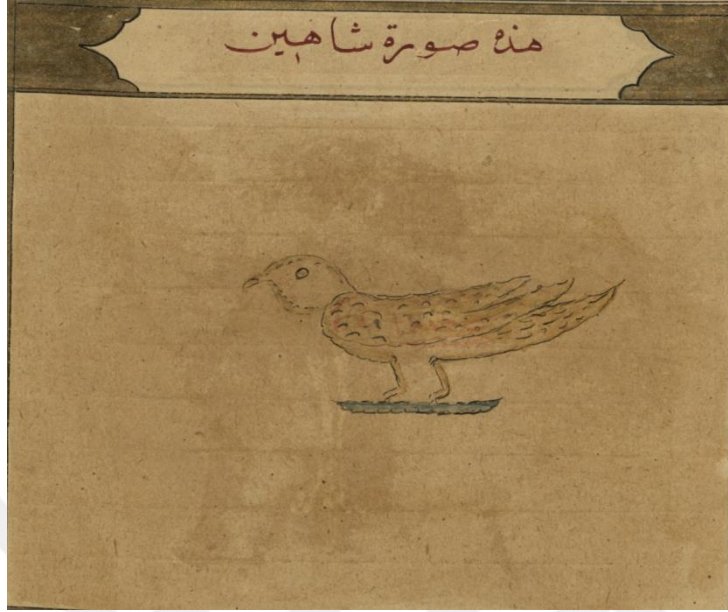 هذه صورة شاهين